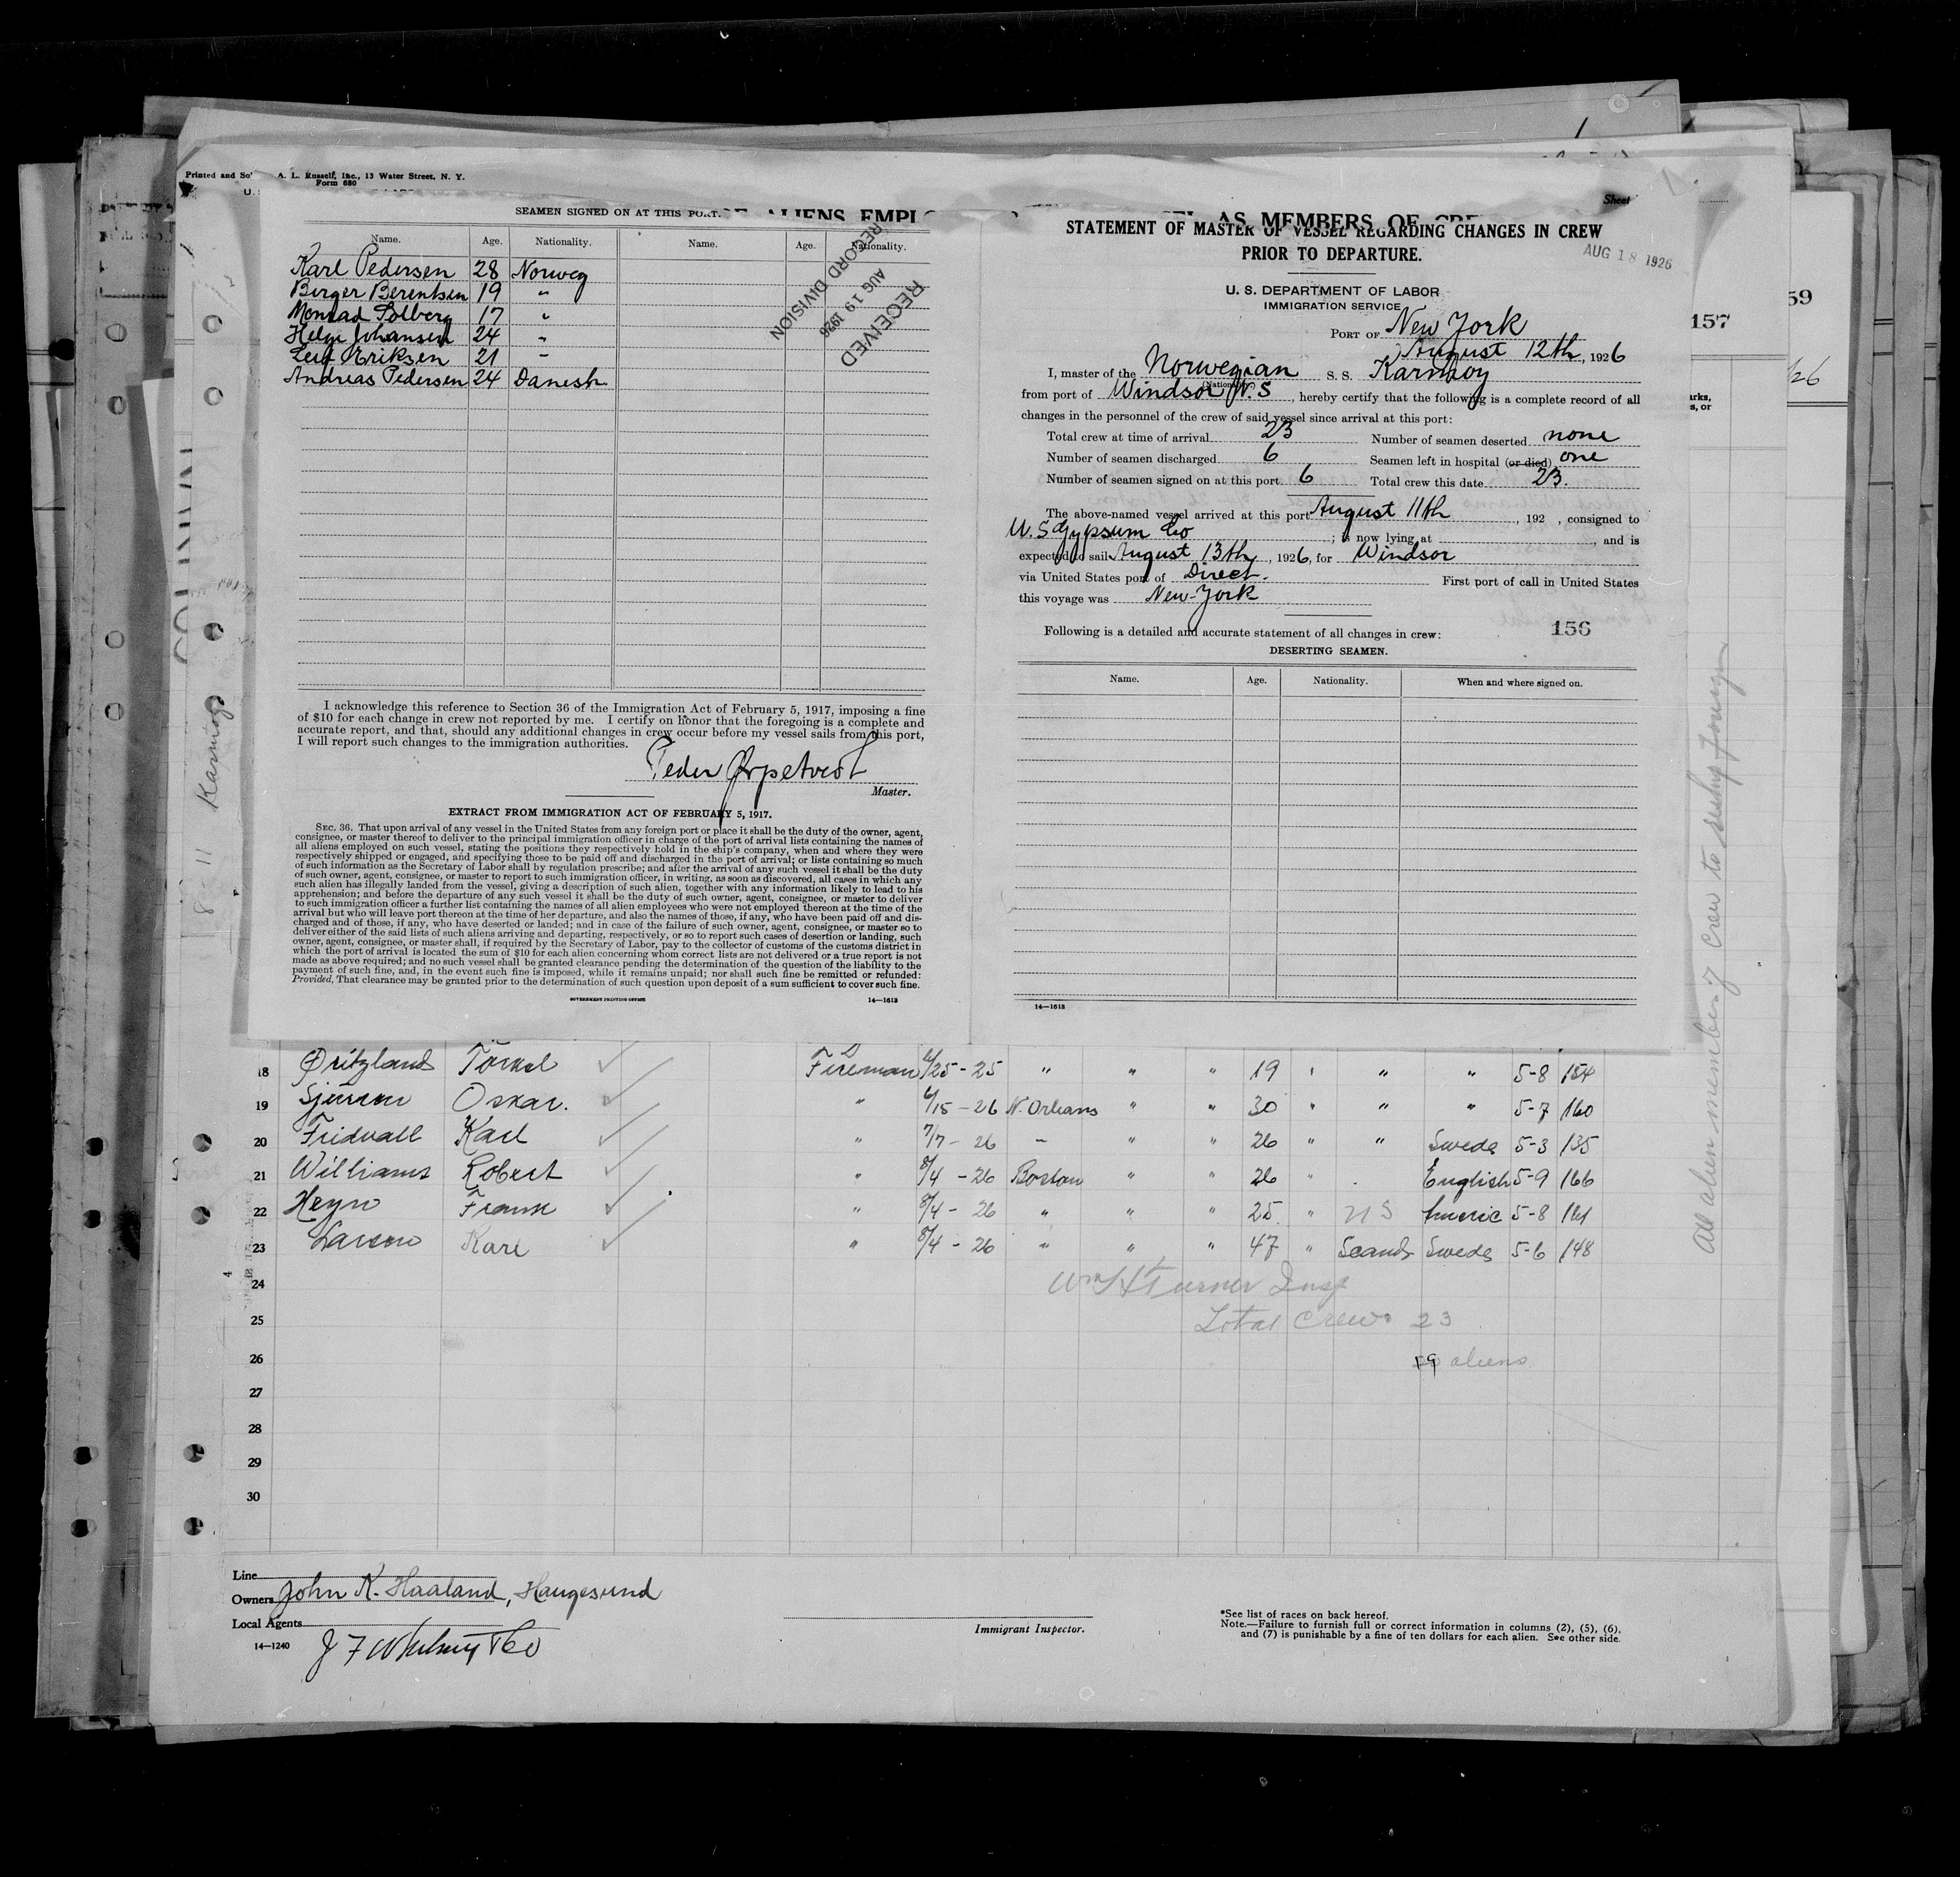 Printed and So A. L. Russell, Inc., 13 Water Street, N. Y.
Form 680
U.
Sheet
SEAMEN SIGNED ON AT THIS PORT.
ALIENS EMPLO
AS MEMBERS OF CRE
Name. Age. Nationality. Name. Age. Nationality.
Karl Pedersen 28 Norweg
Berger Berentsen 19 "
Monrad Solberg 17 "
Helge Johansen 24 "
Leif Eriksen 21 "
Andreas Pedersen 24 Danesh
RECEIVED
AUG 19 1926
RECORD DIVISION
I acknowledge this reference to Section 36 of the Immigration Act of February 5, 1917, imposing a fine
of $10 for each change in crew not reported by me. I certify on honor that the foregoing is a complete and
accurate report, and that, should any additional changes in crew occur before my vessel sails from this port,
I will report such changes to the immigration authorities.
Peder
Master.
EXTRACT FROM IMMIGRATION ACT OF FEBRUARY 5, 1917.
SEC. 36. That upon arrival of any vessel in the United States from any foreign port or place it shall be the duty of the owner, agent,
consignee, or master thereof to deliver to the principal immigration officer in charge of the port of arrival lists containing the names of
all aliens employed on such vessel, stating the positions they respectively hold in the ship's company, when and where they were
respectively shipped or engaged, and specifying those to be paid off and discharged in the port of arrival; or lists containing so much
of such information as the Secretary of Labor shall by regulation prescribe; and after the arrival of any such vessel it shall be the duty
of such owner, agent, consignee, or master to report to such immigration officer, in writing, as soon as discovered, all cases in which any
such alien has illegally landed from the vessel, giving a description of such alien, together with any information likely to lead to his
apprehension; and before the departure of any such vessel it shall be the duty of such owner, agent, consignee, or master to deliver
to such immigration officer a further list containing the names of all alien employees who were not employed thereon at the time of the
arrival but who will leave port thereon at the time of her departure, and also the names of those, if any, who have been paid off and dis-
charged and of those, if any, who have deserted or landed; and in case of the failure of such owner, agent, consignee, or master so to
deliver either of the said lists of such aliens arriving and departing, respectively, or so to report such cases of desertion or landing, such
owner, agent, consignee, or master shall, if required by the Secretary of Labor, pay to the collector of customs of the customs district in
which the port of arrival is located the sum of $10 for each alien concerning whom correct lists are not delivered or a true report is not
made as above required; and no such vessel shall be granted clearance pending the determination of the question of the liability to the
payment of such fine, and, in the event such fine is imposed, while it remains unpaid; nor shall such fine be remitted or refunded:
Provided, That clearance may be granted prior to the determination of such question upon deposit of a sum sufficient to cover such fine.
GOVERNMENT PRINTING OFFICE 14—1613
STATEMENT OF MASTER OF VESSEL REGARDING CHANGES IN CREW
PRIOR TO DEPARTURE.
AUG 18 1926
U. S. DEPARTMENT OF LABOR
IMMIGRATION SERVICE
PORT OF New York
August 12th, 1926
I, master of the Norwegian S. S. Karmoy
(Nationality)
from port of Windsor N. S, hereby certify that the following is a complete record of all
changes in the personnel of the crew of said vessel since arrival at this port:
Total crew at time of arrival 23 Number of seamen deserted none
Number of seamen discharged 6 Seamen left in hospital (or died) one
Number of seamen signed on at this port 6 Total crew this date 23.
The above-named vessel arrived at this port August 11th, 192 , consigned to
U. S Gypsum Co; is now lying at , and is
expected to sail August 13th, 1926, for Windsor
via United States port of Direct. First port of call in United States
this voyage was New-York
Following is a detailed and accurate statement of all changes in crew: 156
DESERTING SEAMEN.
Name. Age. Nationality. When and where signed on.
14—1613
59
157
/26
arks,
s, or
8 11
All alien members of crew to
18 Øritzland Torkel Fireman 25-25 " " " 19 " " " 5-8 154
19 Oskar. " 6/15-26 N. Orleans " " 30 " " " 5-7 160
20 Fridvall Karl " 7/7-26 " " " 26 " " Swede 5-3 135
21 Williams Robert " 8/4-26 Boston " " 26 " English 5-9 166
22 Heyn Frank " 8/4-26 " " " 25 " U S Americ 5-8 161
23 Larsen Karl " 8/4-26 " " " 47 " Scand Swede 5-6 148
24 Wm H Turner Insp
25 Total Crew 23
26 19 aliens
27
28
29
30
Line
Owners John K. Haaland, Haugesund
Local Agents
14—1240 J F Whitney & Co
Immigrant Inspector.
*See list of races on back hereof.
Note.—Failure to furnish full or correct information in columns (2), (5), (6),
and (7) is punishable by a fine of ten dollars for each alien. See other side.